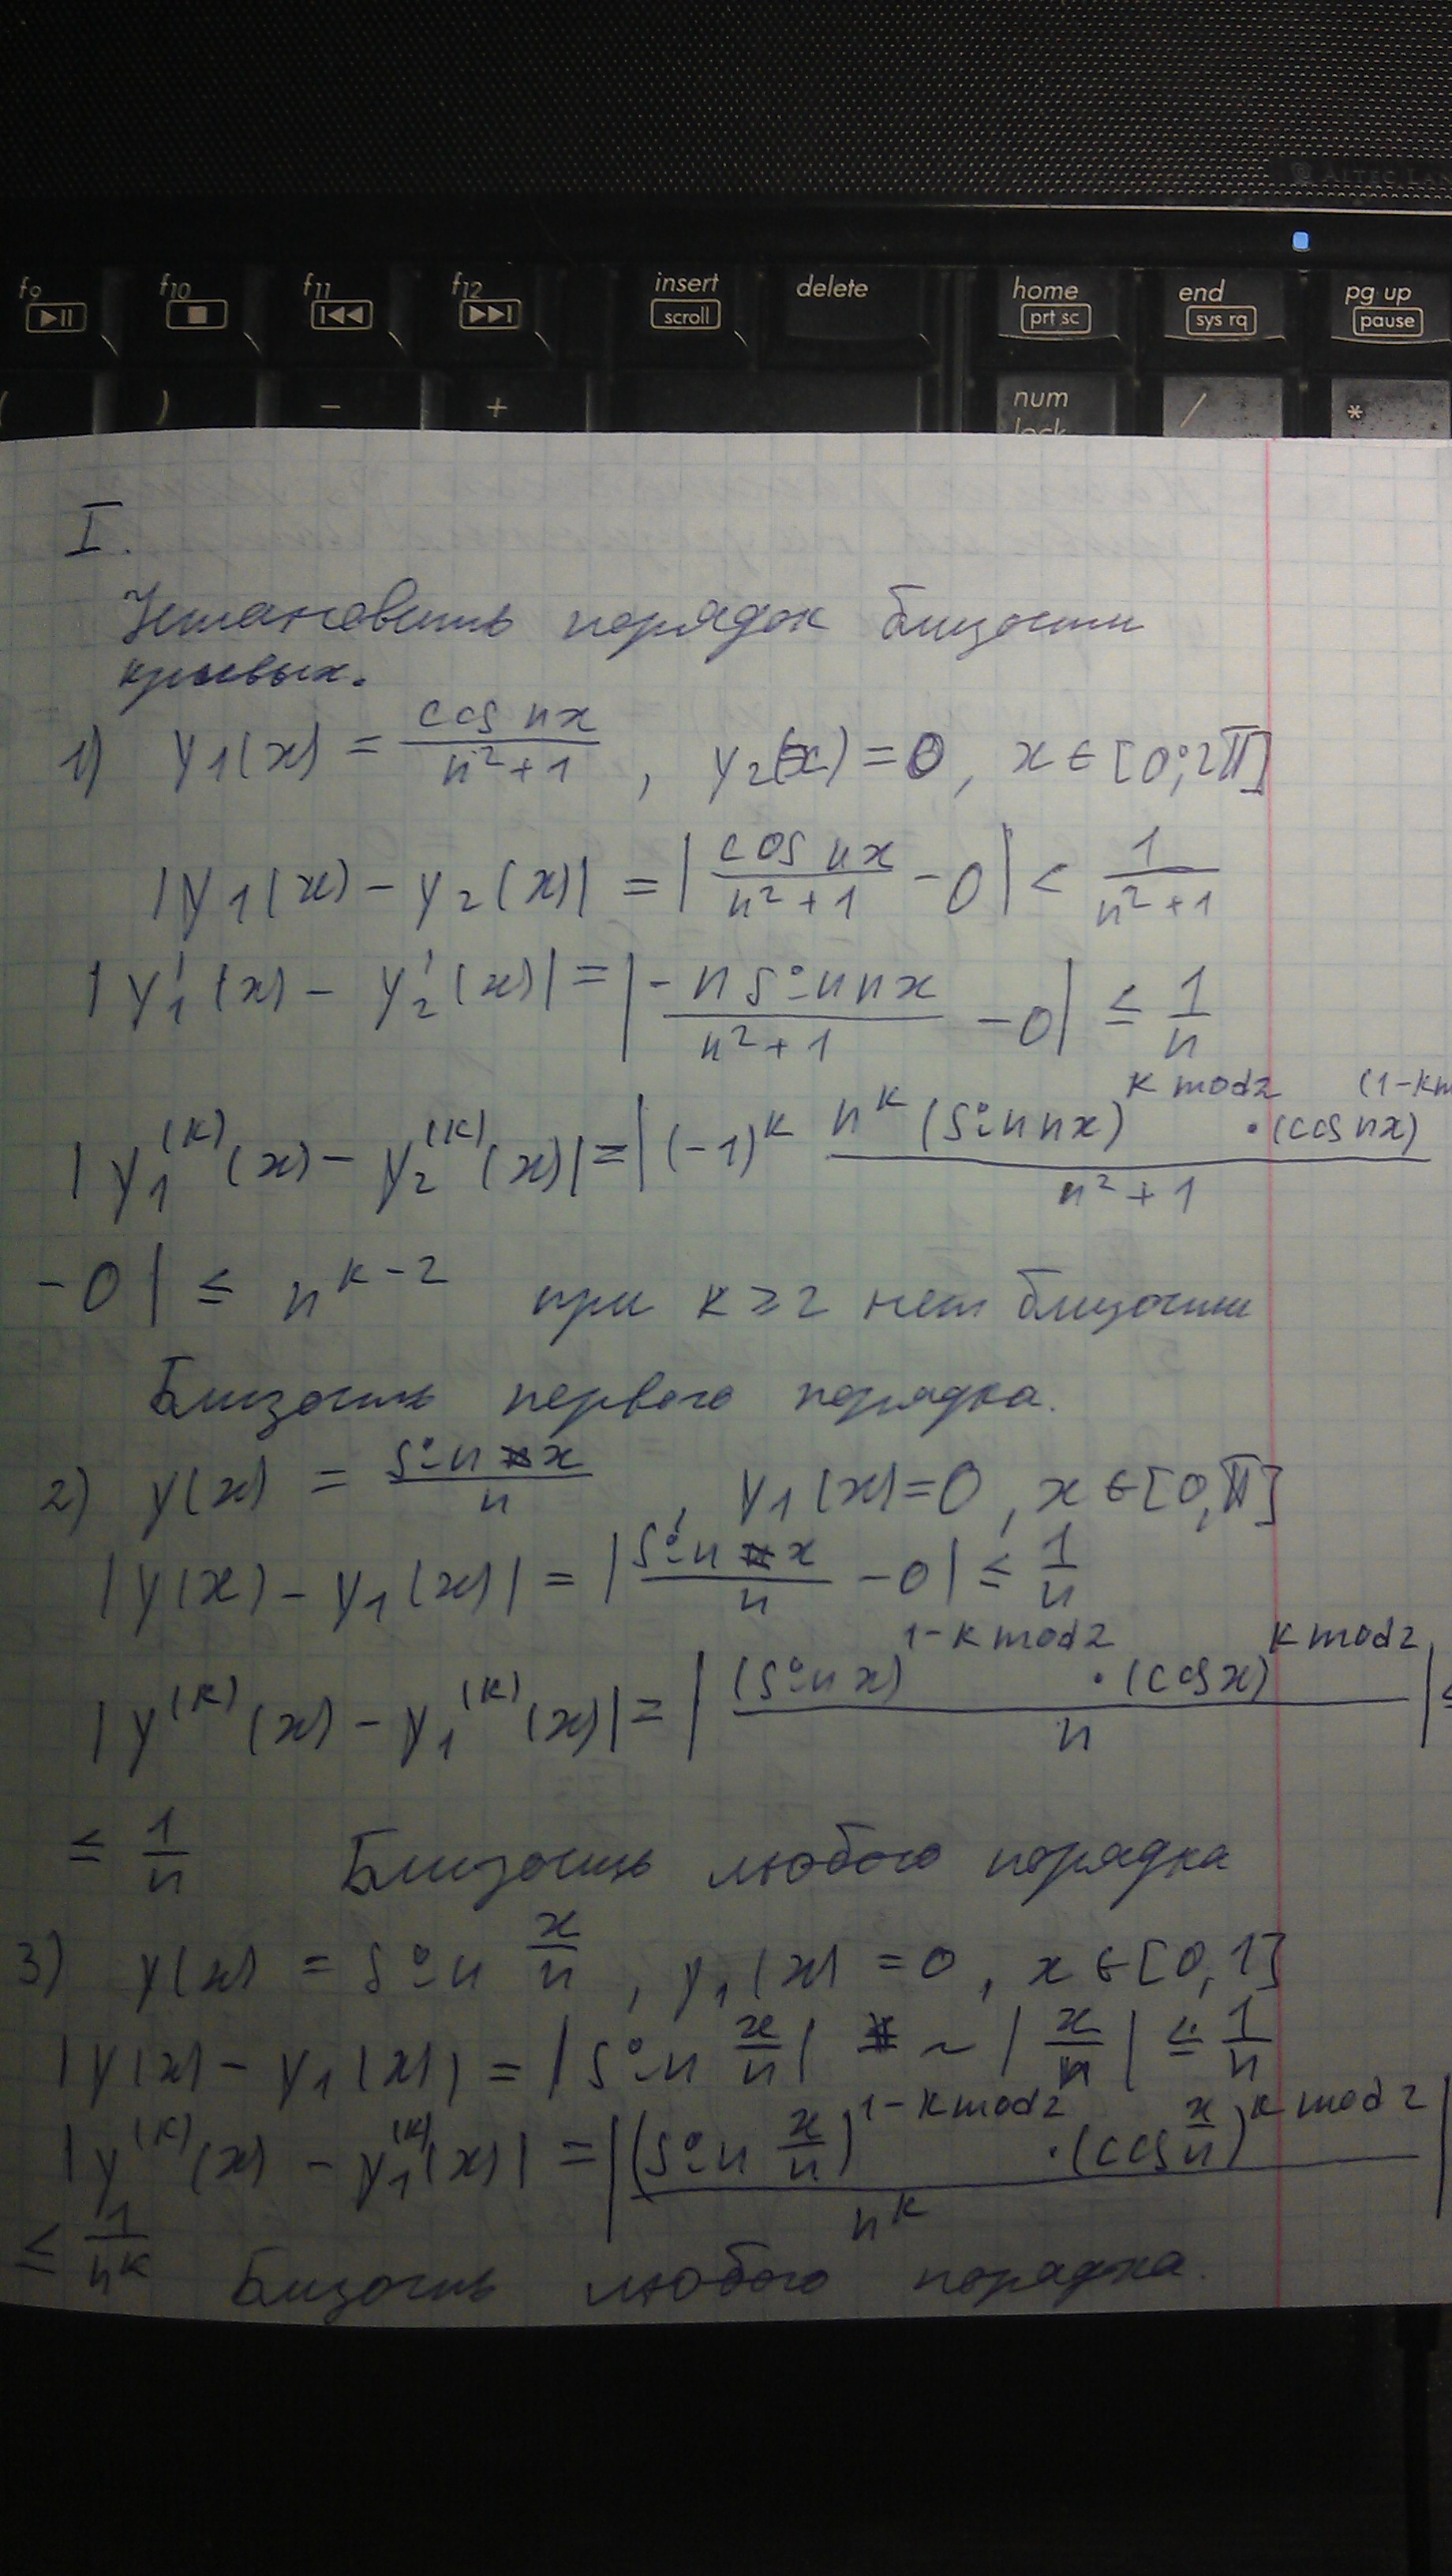 ALTEC LAN
f9 f10 f11 f12 insert delete home end pg up
scroll prt sc sys rq pause
( ) - + num / *
lock
I.
Установить порядок близости
кривых.
1) y₁(x) = cos nx / (n²+1) , y₂(x) = 0, x ∈ [0; 2π]
|y₁(x) - y₂(x)| = |cos nx / (n²+1) - 0| < 1/(n²+1)
|y₁'(x) - y₂'(x)| = |-n sin nx / (n²+1) - 0| ≤ 1/n
|y₁^(k)(x) - y₂^(k)(x)| = |(-1)^k n^k (sin nx)^(k mod 2) · (cos nx)^(1-k m / (n²+1)
- 0| ≤ n^(k-2) при k ≥ 2 нет близости
Близость первого порядка.
2) y(x) = sin x / n , y₁(x) = 0, x ∈ [0, π]
|y(x) - y₁(x)| = |sin x / n - 0| ≤ 1/n
|y^(k)(x) - y₁^(k)(x)| = |(sin x)^(1-k mod 2) · (cos x)^(k mod 2) / n| ≤
≤ 1/n Близость любого порядка
3) y(x) = sin x/n , y₁(x) = 0, x ∈ [0, 1]
|y(x) - y₁(x)| = |sin x/n| ~ |x/n| ≤ 1/n
|y^(k)(x) - y₁^(k)(x)| = |(sin x/n)^(1-k mod 2) · (cos x/n)^(k mod 2) / n^k|
≤ 1/n^k Близость любого порядка.